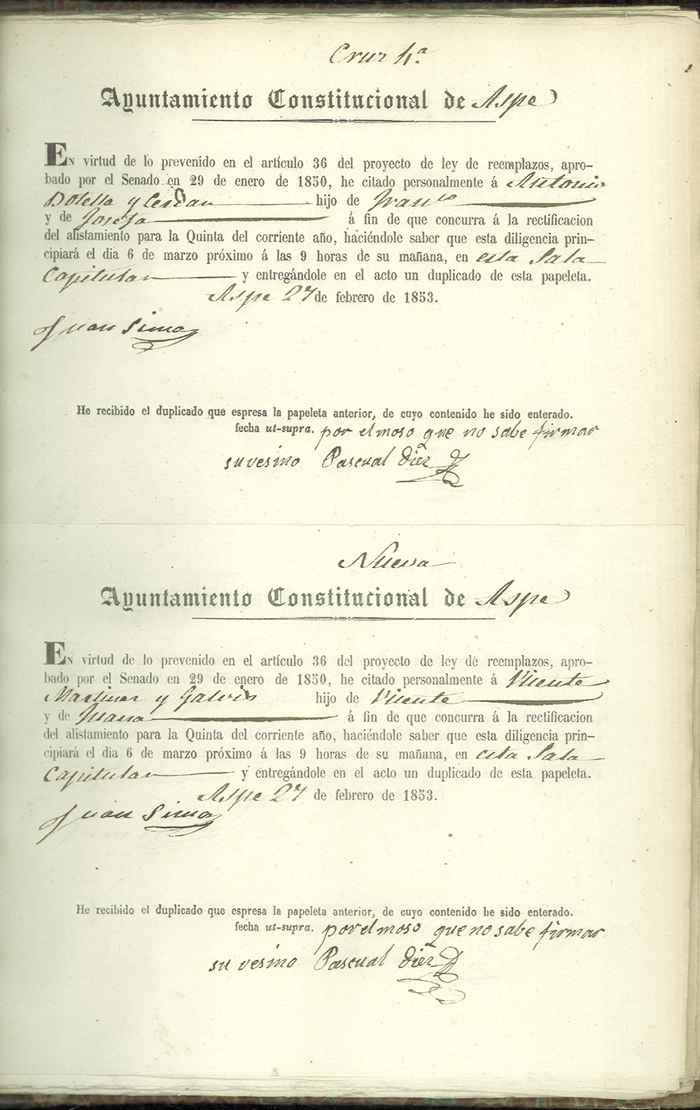 Cruz 4.ª
Ayuntamiento Constitucional de Aspe
En virtud de lo prevenido en el artículo 36 del proyecto de ley de reemplazos, apro-
bado por el Senado en 29 de enero de 1850, he citado personalmente á Antonio
Botella y Cerdan hijo de Fran.co
y de Josefa á fin de que concurra á la rectificacion
del alistamiento para la Quinta del corriente año, haciéndole saber que esta diligencia prin-
cipiará el dia 6 de marzo próximo á las 9 horas de su mañana, en esta Sala
Capitular y entregándole en el acto un duplicado de esta papeleta.
Aspe 27 de febrero de 1853.
Juan Sima
He recibido el duplicado que espresa la papeleta anterior, de cuyo contenido he sido enterado.
fecha ut-supra. por el moso que no sabe firmar
su vesino Pascual Diez
Nueva
Ayuntamiento Constitucional de Aspe
En virtud de lo prevenido en el artículo 36 del proyecto de ley de reemplazos, apro-
bado por el Senado en 29 de enero de 1850, he citado personalmente á Vicente
Martinez y Galvis hijo de Vicente
y de Maria á fin de que concurra á la rectificacion
del alistamiento para la Quinta del corriente año, haciéndole saber que esta diligencia prin-
cipiará el dia 6 de marzo próximo á las 9 horas de su mañana, en esta Sala
Capitular y entregándole en el acto un duplicado de esta papeleta.
Aspe 27 de febrero de 1853.
Juan Sima
He recibido el duplicado que espresa la papeleta anterior, de cuyo contenido he sido enterado.
fecha ut-supra. por el moso que no sabe firmar
su vesino Pascual Diez